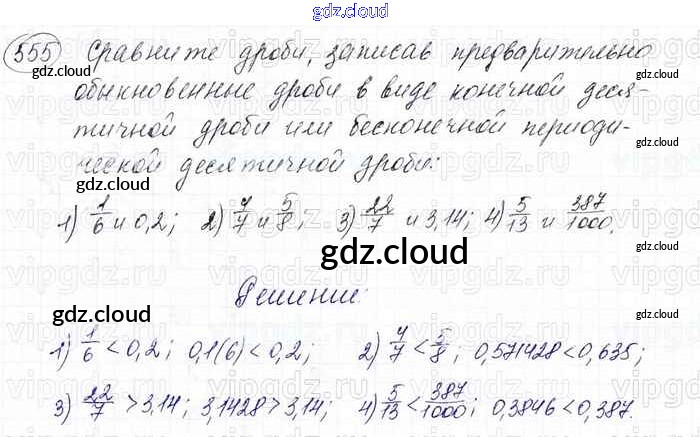 gdz.cloud
555 Сравните дроби, записав предварительно
gdz.cloud gdz.cloud
обыкновенные дроби в виде конечной деся-
тичной дроби или бесконечной периоди-
gdz.cloud
ческой десятичной дроби:
gdz.cloud
1) 1/6 и 0,2; 2) 4/7 и 5/8; 3) 22/7 и 3,14; 4) 5/13 и 387/1000.
gdz.cloud
Решение:
gdz.cloud
1) 1/6 < 0,2; 0,1(6) < 0,2; 2) 4/7 < 5/8; 0,571428 < 0,635;
gdz.cloud gdz.cloud
3) 22/7 > 3,14; 3,1428 > 3,14; 4) 5/13 < 387/1000; 0,3846 < 0,387.